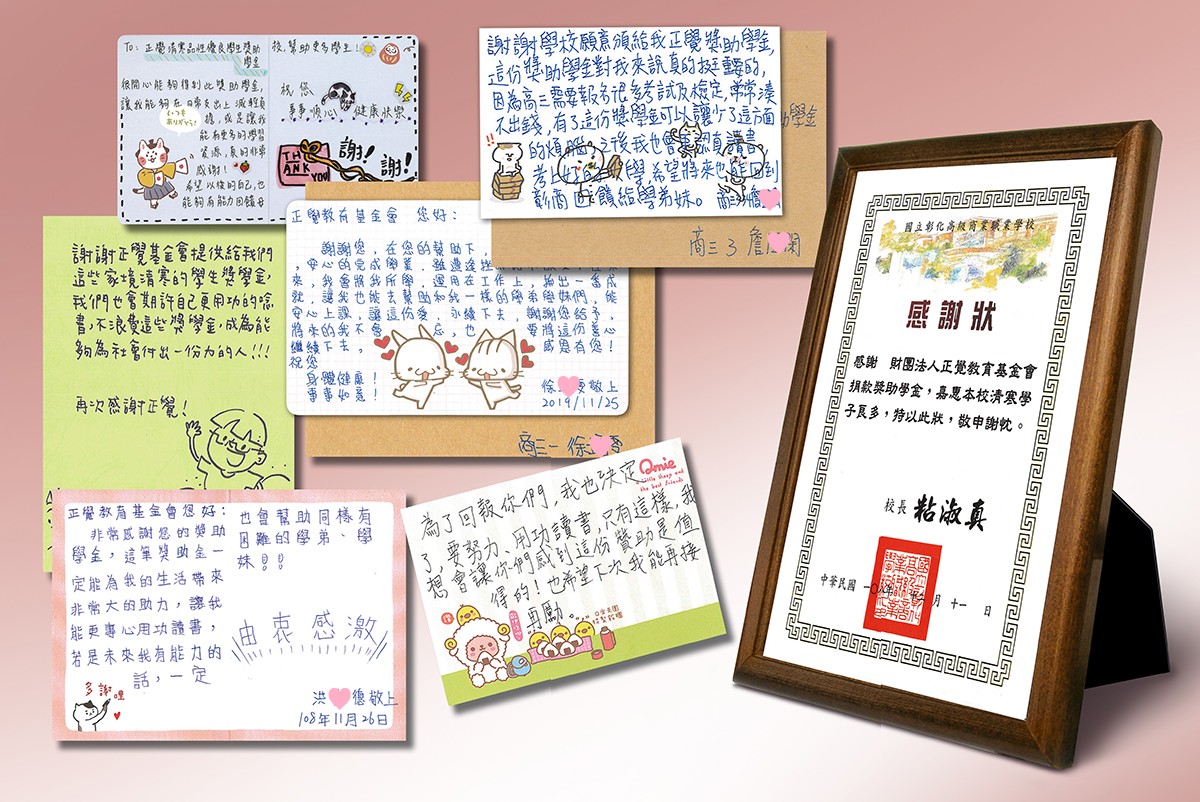 To: 正覺清寒品性優良學生獎助
學金
很開心能夠得到此獎助學金,
讓我能夠在日常支出上減輕負
擔,或是讓我
能有更多的學習
資源,真的非常
感謝!
希望以後的自己,也
能夠有能力回饋母
いつも
ありがとう!
校,幫助更多學生!
祝您
事事順心 健康快樂
THANK
YOU
謝!謝!
謝謝學校願意頒給我正覺獎助學金,
這份獎助學金對我來說真的挺重要的,
因為高三需要報名很多考試及檢定,常常湊
不出錢,有了這份獎學金可以讓少了這方面
的煩惱,之後我也會更認真讀書
考上好的大學,希望將來也能回到
彰商回饋給學弟妹。
學金
商三3 詹 閔
謝謝正覺基金會提供給我們
這些家境清寒的學生獎學金,
我們也會期許自己更用功的唸
書,不浪費這些獎學金,成為能
夠為社會付出一份力的人!!!
再次感謝正覺!
正覺教育基金會 您好:
謝謝您,在您的幫助下,
,安心的完成學業,雖遭逢
來,我會將我所學,運用在工作上,做出一番成
就,讓我也能去幫助和我一樣的學弟學妹們,能
安心上課,讓這份愛,永續下去,謝謝您給予,
將來的我不會 忘,也 要將這份善心
繼續下去, 感恩有您!
祝您
身體健康!
事事如意!
徐 敬上
2019/11/25
商三一 徐
正覺教育基金會您好:
非常感謝您的獎助
學金,這筆獎助金一
定能為我的生活帶來
非常大的助力,讓我
能更專心用功讀書,
若是未來我有能力的
話,一定
也會幫助同樣有
困難的學弟、學
妹!!
由衷感激
多謝哩
洪 德敬上
108年11月26日
Omie
Little Sheep and
the best friends
為了回報你們,我也決定
了,要努力、用功讀書,只有這樣,我
想會讓你們感到這份獎助是值
得的!也希望下次我能再接
再勵。
國立彰化高級商業職業學校
感謝狀
感謝 財團法人正覺教育基金會
捐款獎助學金,嘉惠本校清寒學
子良多,特以此狀,敬申謝忱。
校長 粘淑真
中華民國 一〇八年 月 十一 日